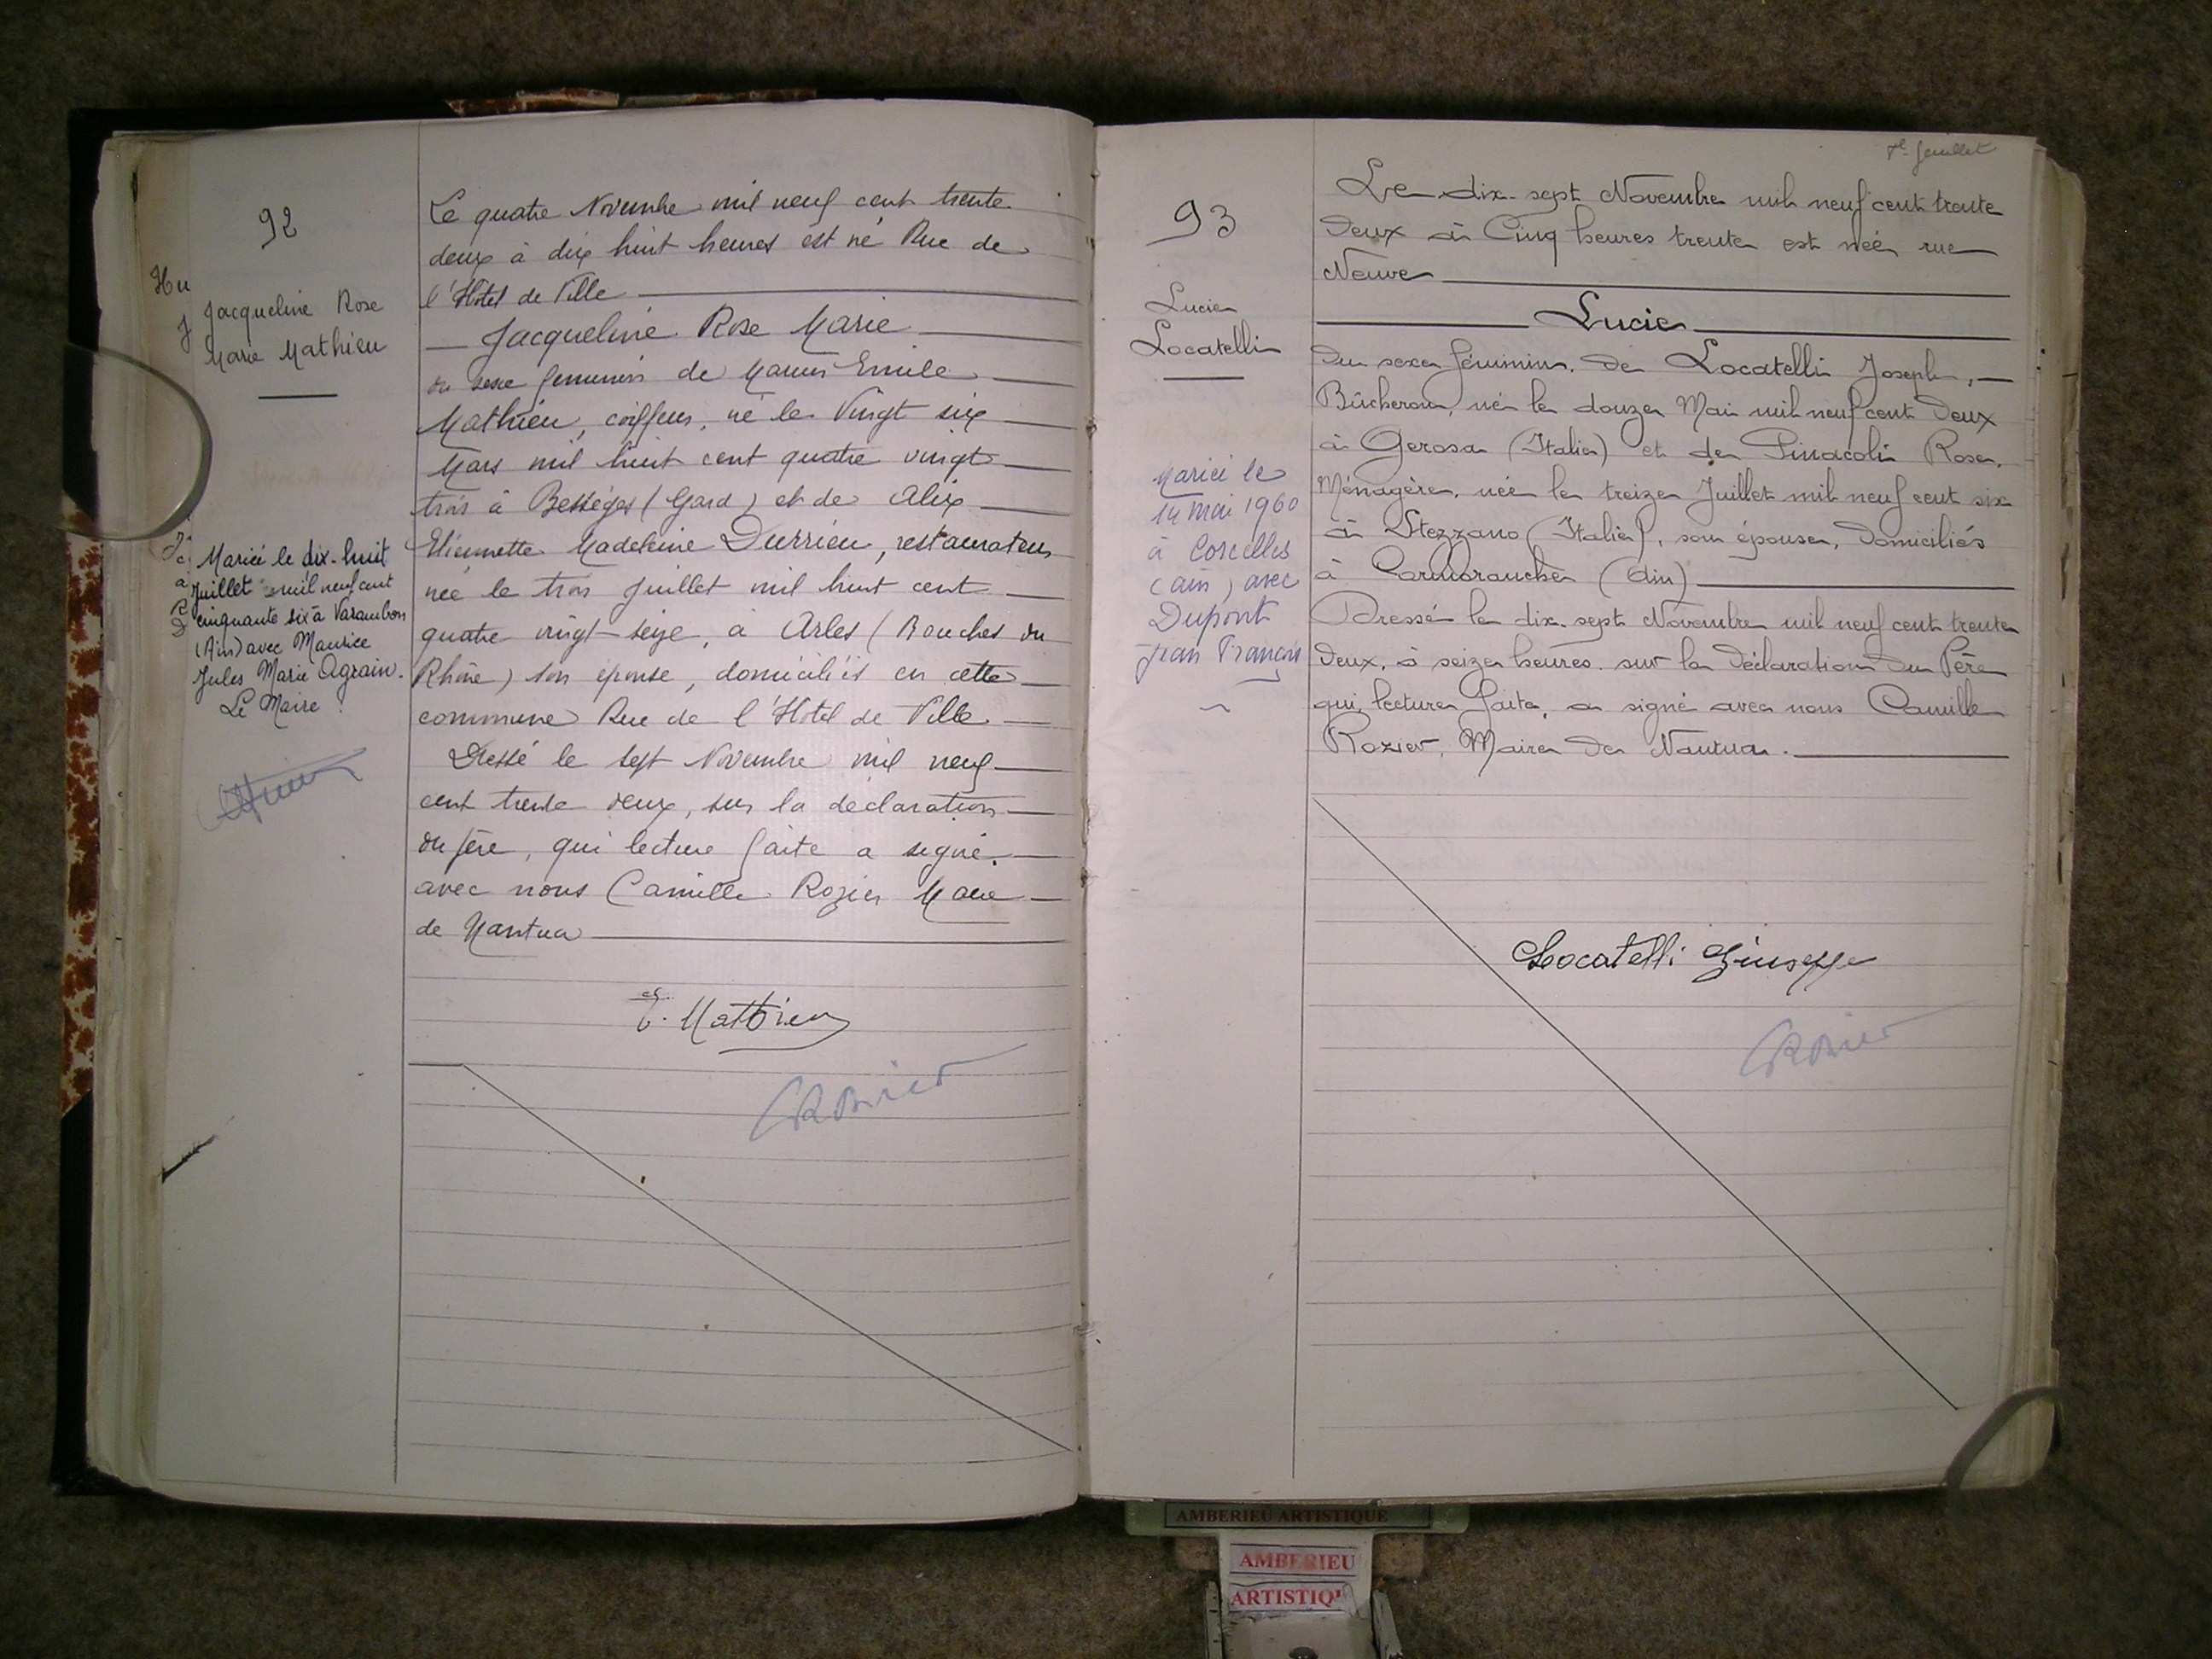 92
Jacqueline Rose
Marie Mathieu
Marié le dix-huit
Juillet mil neuf cent
cinquante six à Varambon
(Ain) avec Maurice
Jules Marie Agrain.
Le Maire
Le quatre Novembre mil neuf cent trente
deux à dix huit heures est né Rue de
l'Hôtel de Ville
Jacqueline Rose Marie
du sexe feminin de Marius Emile
Mathieu, coiffeur, né le Vingt six
Mars mil huit cent quatre vingt
trois à Bességes (Gard) et de Alix
Etiennette Madeleine Durrieu, restaurateur
née le trois Juillet mil huit cent
quatre vingt-seize, à Arles (Bouches du
Rhône) son épouse, domiciliés en cette
commune Rue de l'Hôtel de Ville
Dressé le sept Novembre mil neuf
cent trente deux, sur la déclaration
du père, qui lecture faite a signé
avec nous Camille Rozier Maire
de Nantua
E. Mathieu
CRozier
1e feuillet
93
Lucie
Locatelli
Mariée le
14 mai 1960
à Corcelles
(ain) avec
Dupont
Jean François
Le dix-sept Novembre mil neuf cent trente
Deux à Cinq heures trente est née rue
Neuve
Lucie
Du sexe féminin, de Locatelli Joseph,
Bûcheron, né le douze Mai mil neuf cent Deux
à Gerosa (Italie) et de Pinacoli Rose,
Ménagère, née le treize Juillet mil neuf cent six
à Stezzano (Italie), son épouse, Domiciliés
à Cormoranche (Ain)
Dressé le dix-sept Novembre mil neuf cent trente
Deux, à seize heures sur la Déclaration du Père
qui, lecture faite, a signé avec nous Camille
Rozier, Maire de Nantua.
Locatelli Giuseppe
CRozier
AMBERIEU ARTISTIQUE
AMBERIEU
ARTISTIQ